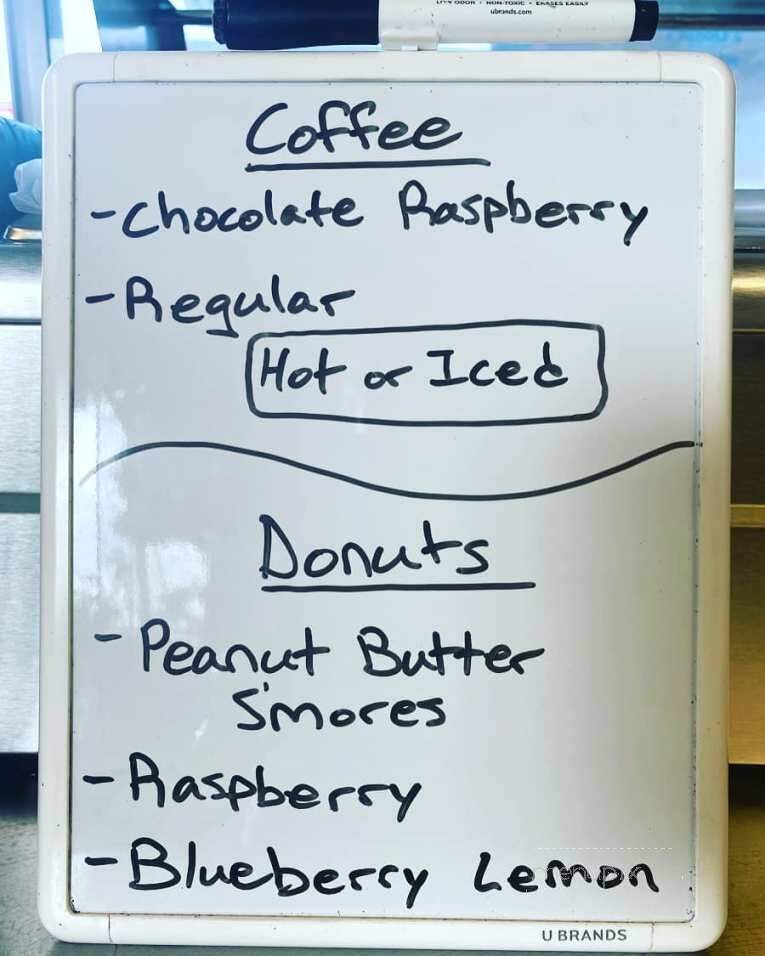 LOW ODOR • NON-TOXIC • ERASES EASILY
ubrands.com
Coffee
- Chocolate Raspberry
- Regular
Hot or Iced
Donuts
- Peanut Butter
S'mores
- Raspberry
- Blueberry Lemon
U BRANDS